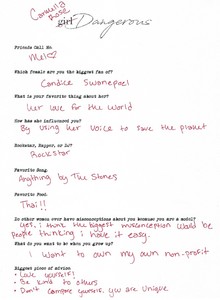 Carmella
Rose
girl Dangerous
Friends Call Me
Mel♡
Which female are you the biggest fan of?
Candice Swanepoel
What is your favorite thing about her?
Her love for the world
How has she influenced you?
By using her voice to save the planet
Rockstar, Rapper, or DJ?
Rockstar
Favorite Song.
Anything by The Stones
Favorite Food.
Thai!!
Do other women ever have misconceptions about you because you are a model?
Yes, i think the biggest misconception would be
people thinking i have it easy.
What do you want to be when you grow up?
I want to own my own non-profit
Biggest piece of advice.
• Love yourself!
• Be kind to others
• Don't compare yourself, you are unique